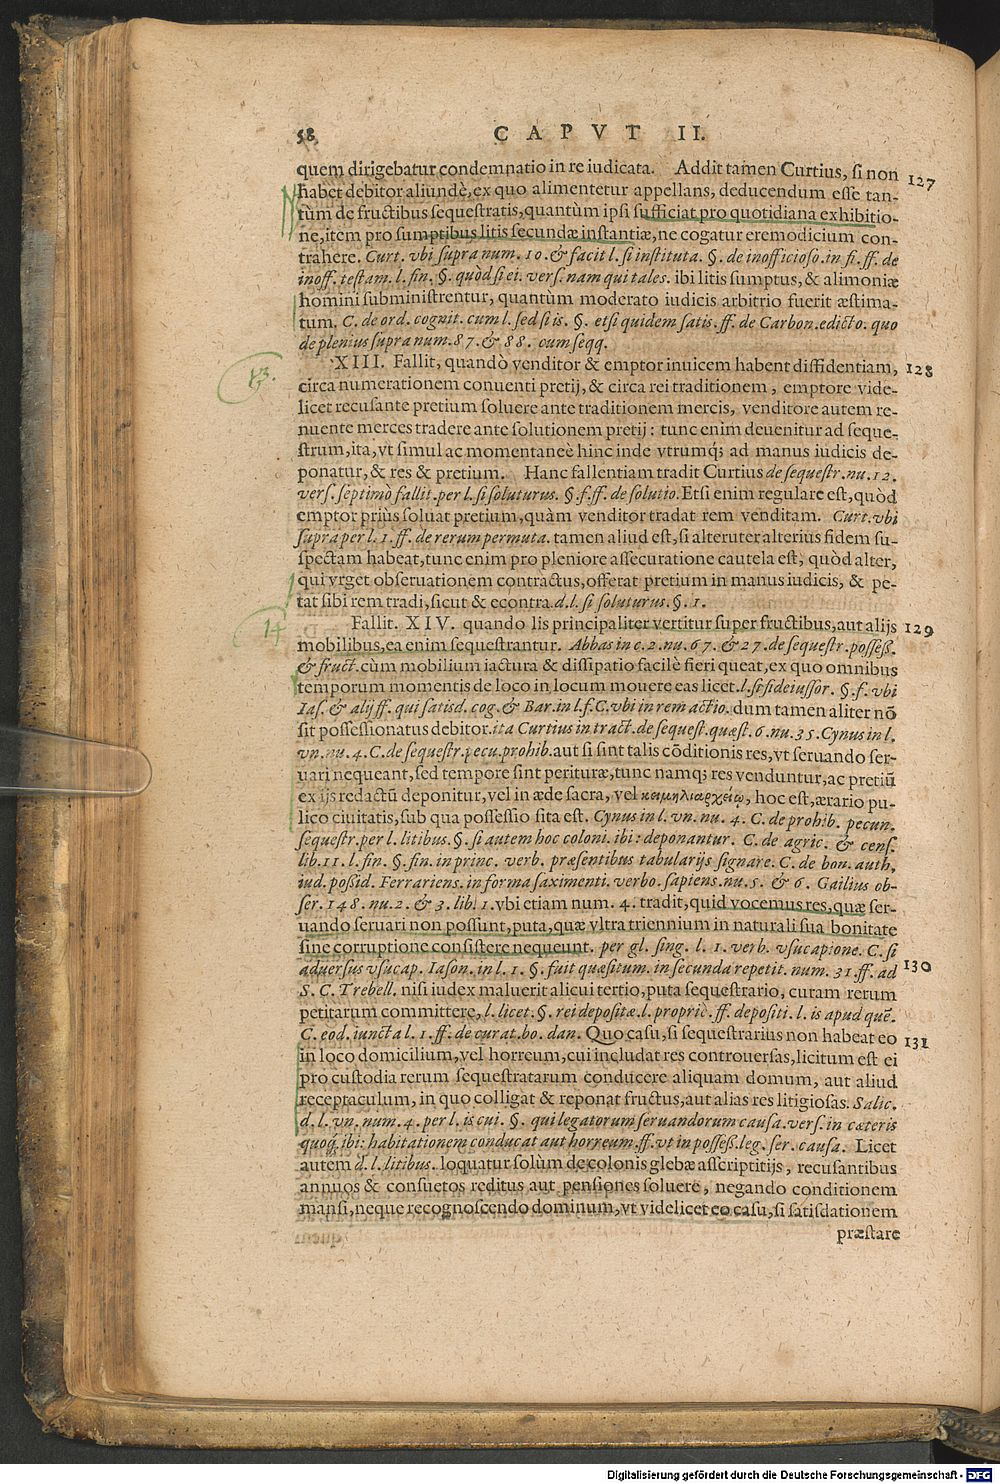 58
CAPVT II.
quem dirigebatur condemnatio in re iudicata. Addit tamen Curtius, si non 127
habet debitor aliundè, ex quo alimentetur appellans, deducendum esse tan-
tùm de fructibus sequestratis, quantùm ipsi sufficiat pro quotidiana exhibitio-
ne, item pro sumptibus litis secundæ instantiæ, ne cogatur eremodicium con-
trahere. Curt. vbi supra num. 10. & facit l. si instituta. §. de inofficioso. in fi. ff. de
inoff. testam. l. fin. §. quòd si ei. vers. nam qui tales. ibi litis sumptus, & alimoniæ
homini subministrentur, quantùm moderato iudicis arbitrio fuerit æstima-
tum. C. de ord. cognit. cum l. sed si is. §. etsi quidem satis. ff. de Carbon. edicto. quo
de plenius supra num. 87. & 88. cum seqq.
13.
XIII. Fallit, quandò venditor & emptor inuicem habent diffidentiam, 128
circa numerationem conuenti pretij, & circa rei traditionem, emptore vide-
licet recusante pretium soluere ante traditionem mercis, venditore autem re-
nuente merces tradere ante solutionem pretij: tunc enim deuenitur ad seque-
strum, ita, vt simul ac momentaneè hinc inde vtrumq́; ad manus iudicis de-
ponatur, & res & pretium. Hanc fallentiam tradit Curtius de sequestr. nu. 12.
vers. septimò fallit. per l. si soluturus. §. f. ff. de solutio. Etsi enim regulare est, quòd
emptor priùs soluat pretium, quàm venditor tradat rem venditam. Curt. vbi
supra per l. 1. ff. de rerum permuta. tamen aliud est, si alteruter alterius fidem su-
spectam habeat, tunc enim pro pleniore assecuratione cautela est, quòd alter,
qui vrget obseruationem contractus, offerat pretium in manus iudicis, & pe-
tat sibi rem tradi, sicut & econtra. d. l. si soluturus. §. 1.
14
Fallit. XIV. quando lis principaliter vertitur super fructibus, aut alijs 129
mobilibus, ea enim sequestrantur. Abbas in c. 2. nu. 67. & 27. de sequestr. possess.
& fruct. cùm mobilium iactura & dissipatio facilè fieri queat, ex quo omnibus
temporum momentis de loco in locum mouere eas licet. l. si fideiussor. §. f. vbi
Ias. & alij ff. qui satisd. cog. & Bar. in l. f. C. vbi in rem actio. dum tamen aliter nō
sit possessionatus debitor. ita Curtius in tract. de sequest. quæst. 6. nu. 35. Cynus in l.
vn. nu. 4. C. de sequestr. pecu. prohib. aut si sint talis cōditionis res, vt seruando ser-
uari nequeant, sed tempore sint perituræ, tunc namq; res venduntur, ac pretiū
ex ijs redactū deponitur, vel in æde sacra, vel κειμηλιαρχείῳ, hoc est, ærario pu-
lico ciuitatis, sub qua possessio sita est. Cynus in l. vn. nu. 4. C. de prohib. pecun.
sequestr. per l. litibus. §. si autem hoc coloni. ibi: deponantur. C. de agric. & cens.
lib. 11. l. fin. §. fin. in princ. verb. præsentibus tabularijs signare. C. de bon. auth.
iud. possid. Ferrariens. in forma saximenti. verbo. sapiens. nu. 5. & 6. Gailius ob-
ser. 148. nu. 2. & 3. lib. 1. vbi etiam num. 4. tradit, quid vocemus res, quæ ser-
uando seruari non possunt, puta, quæ vltra triennium in naturali sua bonitate
sine corruptione consistere nequeunt. per gl. sing. l. 1. verb. vsucapione. C. si
aduersus vsucap. Iason. in l. 1. §. fuit quæsitum. in secunda repetit. num. 31. ff. ad 130
S. C. Trebell. nisi iudex maluerit alicui tertio, puta sequestrario, curam rerum
petitarum committere, l. licet. §. rei depositæ. l. propriè. ff. depositi. l. is apud quē.
C. eod. iuncta l. 1. ff. de curat. bo. dan. Quo casu, si sequestrarius non habeat eo 131
in loco domicilium, vel horreum, cui includat res controuersas, licitum est ei
pro custodia rerum sequestratarum conducere aliquam domum, aut aliud
receptaculum, in quo colligat & reponat fructus, aut alias res litigiosas. Salic.
d. l. vn. num. 4. per l. is cui. §. qui legatorum seruandorum causa. vers. in cæteris
quoq́. ibi: habitationem conducat aut horreum. ff. vt in possess. leg. ser. causa. Licet
autem d. l. litibus. loquatur solùm de colonis glebæ asscriptitijs, recusantibus
annuos & consuetos reditus aut pensiones soluere, negando conditionem
mansi, neque recognoscendo dominum, vt videlicet eo casu, si satisdationem
præstare
Digitalisierung gefördert durch die Deutsche Forschungsgemeinschaft - DFG